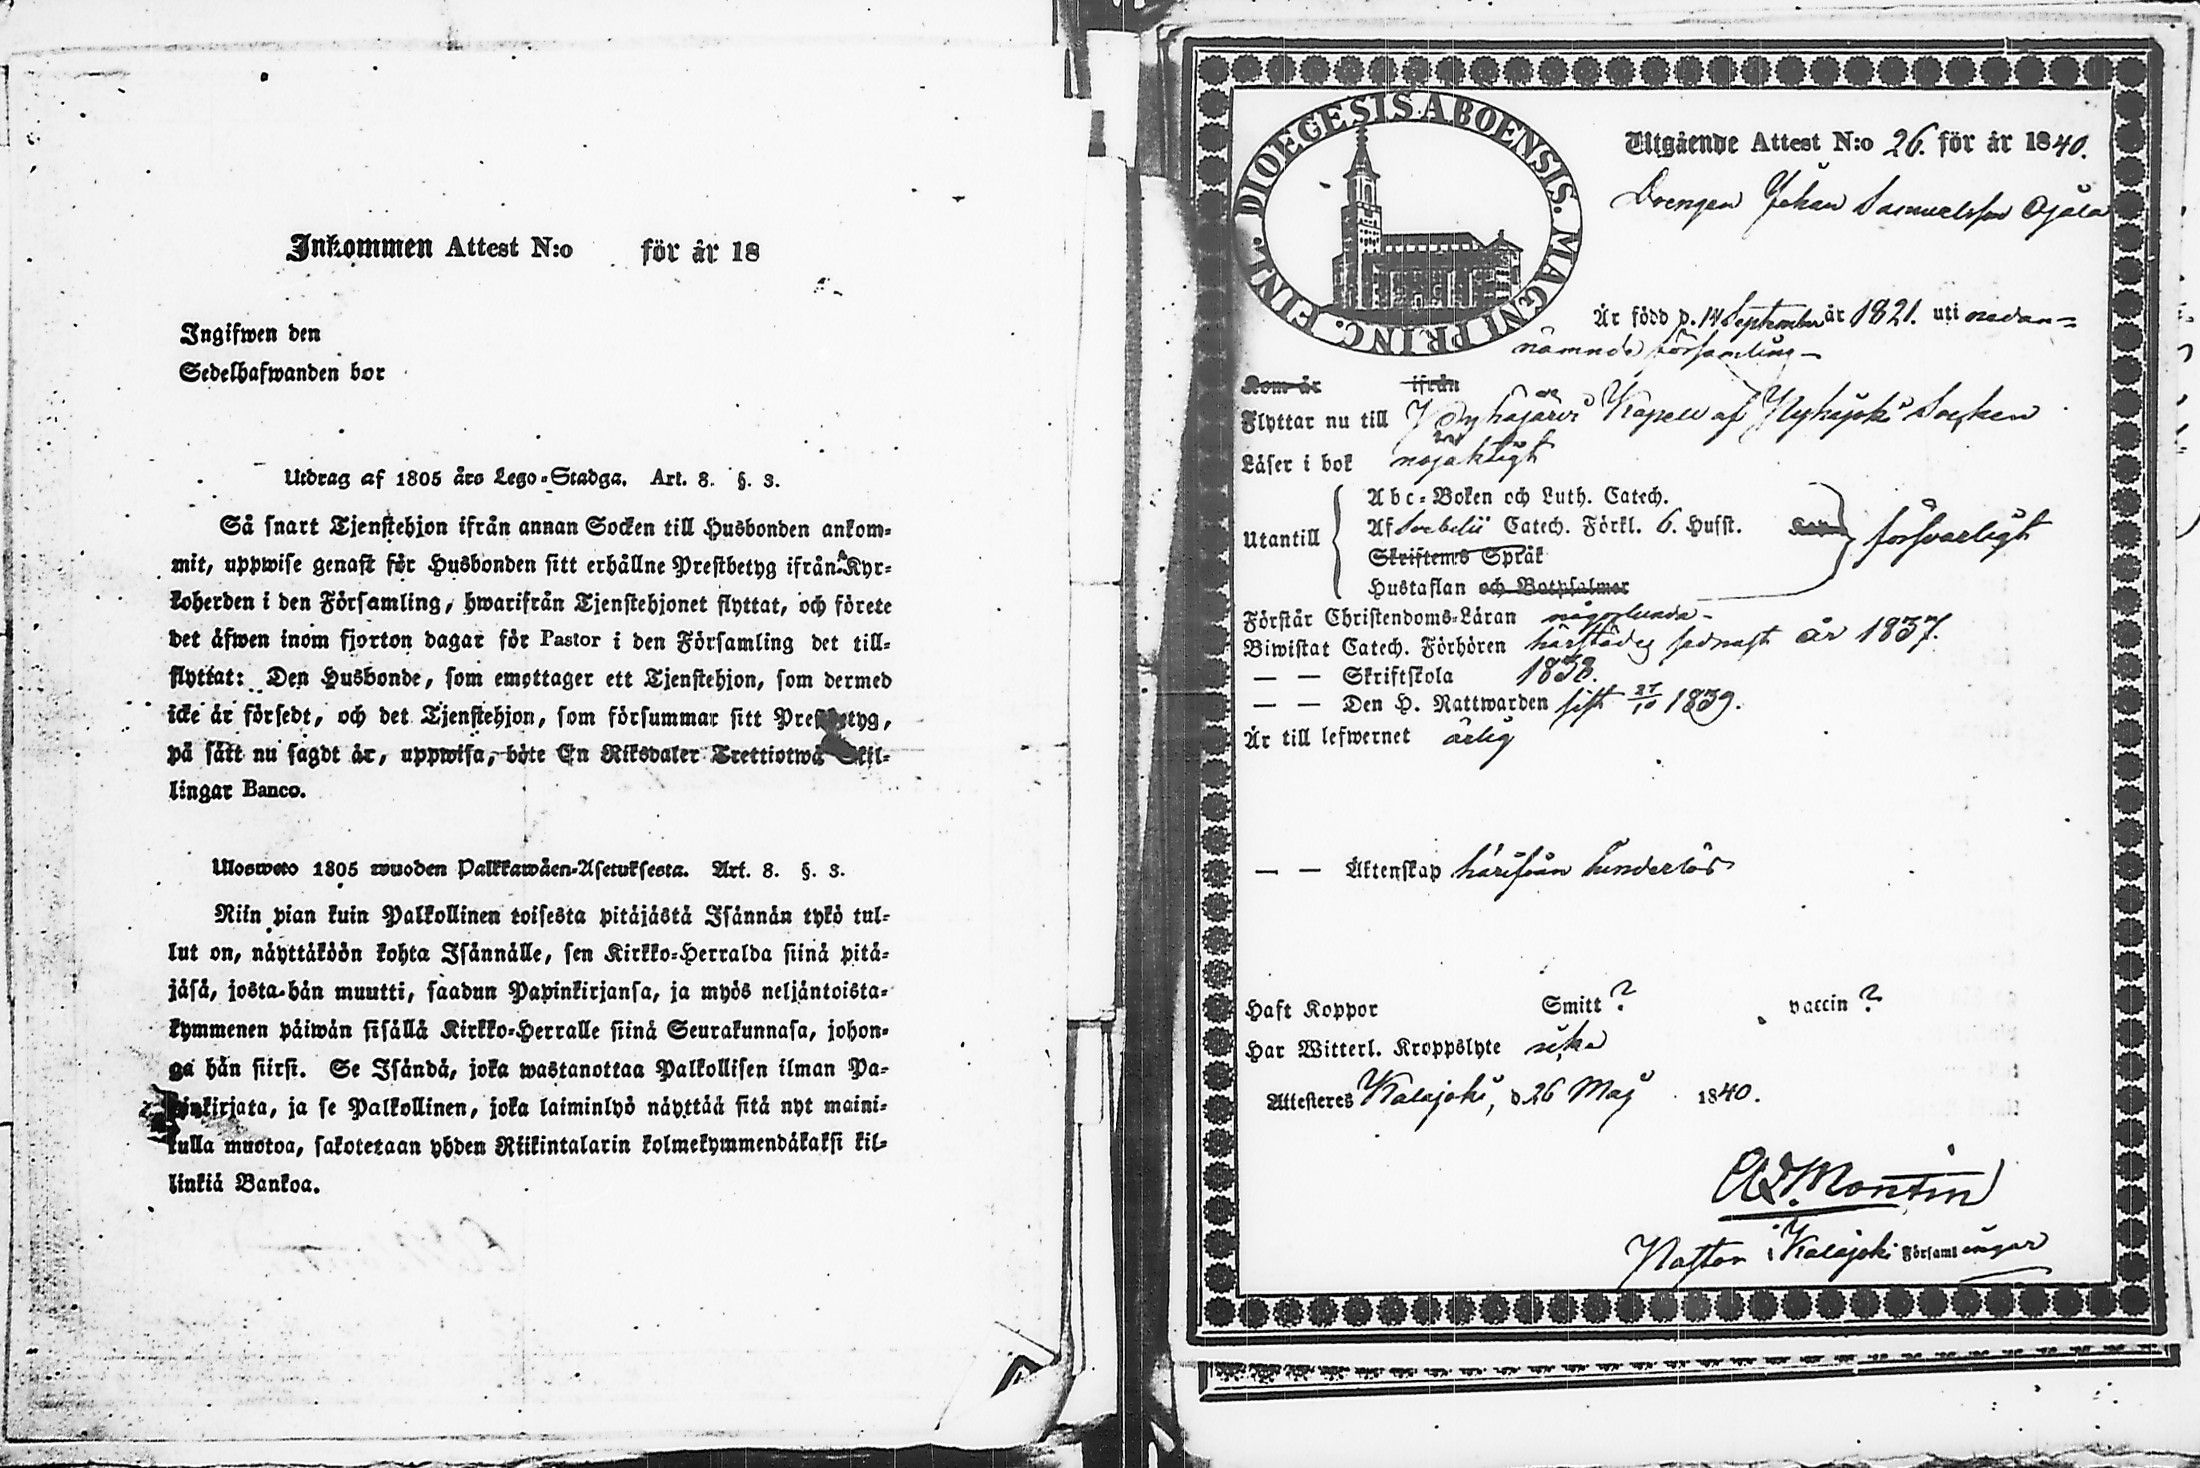 Inkommen Attest N:o för år 18
Ingifwen den
Sedelhafwanden bor
Utdrag af 1805 års Lego-Stadga. Art. 8. §. 3.
Så snart Tjenstehjon ifrån annan Socken till Husbonden ankom-
mit, uppwise genast för Husbonden sitt erhållne Prestbetyg ifrån Kyr-
koherden i den Församling, hwarifrån Tjenstehjonet flyttat, och förete
det äfwen inom fjorton dagar för Pastor i den Församling det till-
flyttat: Den Husbonde, som emottager ett Tjenstehjon, som dermed
icke är försedt, och det Tjenstehjon, som försummar sitt Prestbetyg,
på sätt nu sagdt är, uppwisa, böte En Riksdaler Trettiotwå Skil-
lingar Banco.
Ulosweto 1805 wuoden Palkkawäen-Asetuksesta. Art. 8. §. 3.
Niin pian kuin Palkollinen toisesta pitäjästä Isännän tykö tul-
lut on, näyttäköön kohta Isännälle, sen Kirkko-Herralda siinä pitä-
jäsä, josta hän muutti, saadun Papinkirjansa, ja myös neljäntoista-
kymmenen päiwän sisällä Kirkko-Herralle siinä Seurakunnasa, johon-
ga hän siirsi. Se Isändä, joka wastanottaa Palkollisen ilman Pa-
pinkirjata, ja se Palkollinen, joka laiminlyö näyttää sitä nyt maini-
tulla muotoa, sakotetaan yhden Riikintalarin kolmekymmendäkaksi kil-
linkiä Bankoa.
DIOECESIS ABOENSIS. MAGNI PRINC. FINL.
Utgående Attest N:o 26. för år 1840.
Drengen Johan Samuelsson Ojala
Är född d. 14 September år 1821. uti nedan=
nämnde församling—
Kom år ifrån
Flyttar nu till Pyhäjärvi Kapell af Pyhäjoki Socken
Läser i bok nöjaktigt
Utantill
Abc-Boken och Luth. Catech.
Af Svebelii Catech. Förkl. 6. Hufst.
Skriftens Språk
Hustaflan och Botpsalmer
försvarligt
Förstår Christendoms-Läran någorlunda—
Biwistat Catech. Förhören härstädes sednast år 1837.
— — Skriftskola 1838.
— — Den H. Nattwarden sist 27/10 1839.
Är till lefwernet ärlig
— — Äktenskap härifrån hinderlös
Haft Koppor Smitt ? vaccin ?
Har Witterl. Kroppslyte icke
Attesteres Kalajoki, d 26 Maj 1840.
Montin
Pastor i Kalajoki Församlingar